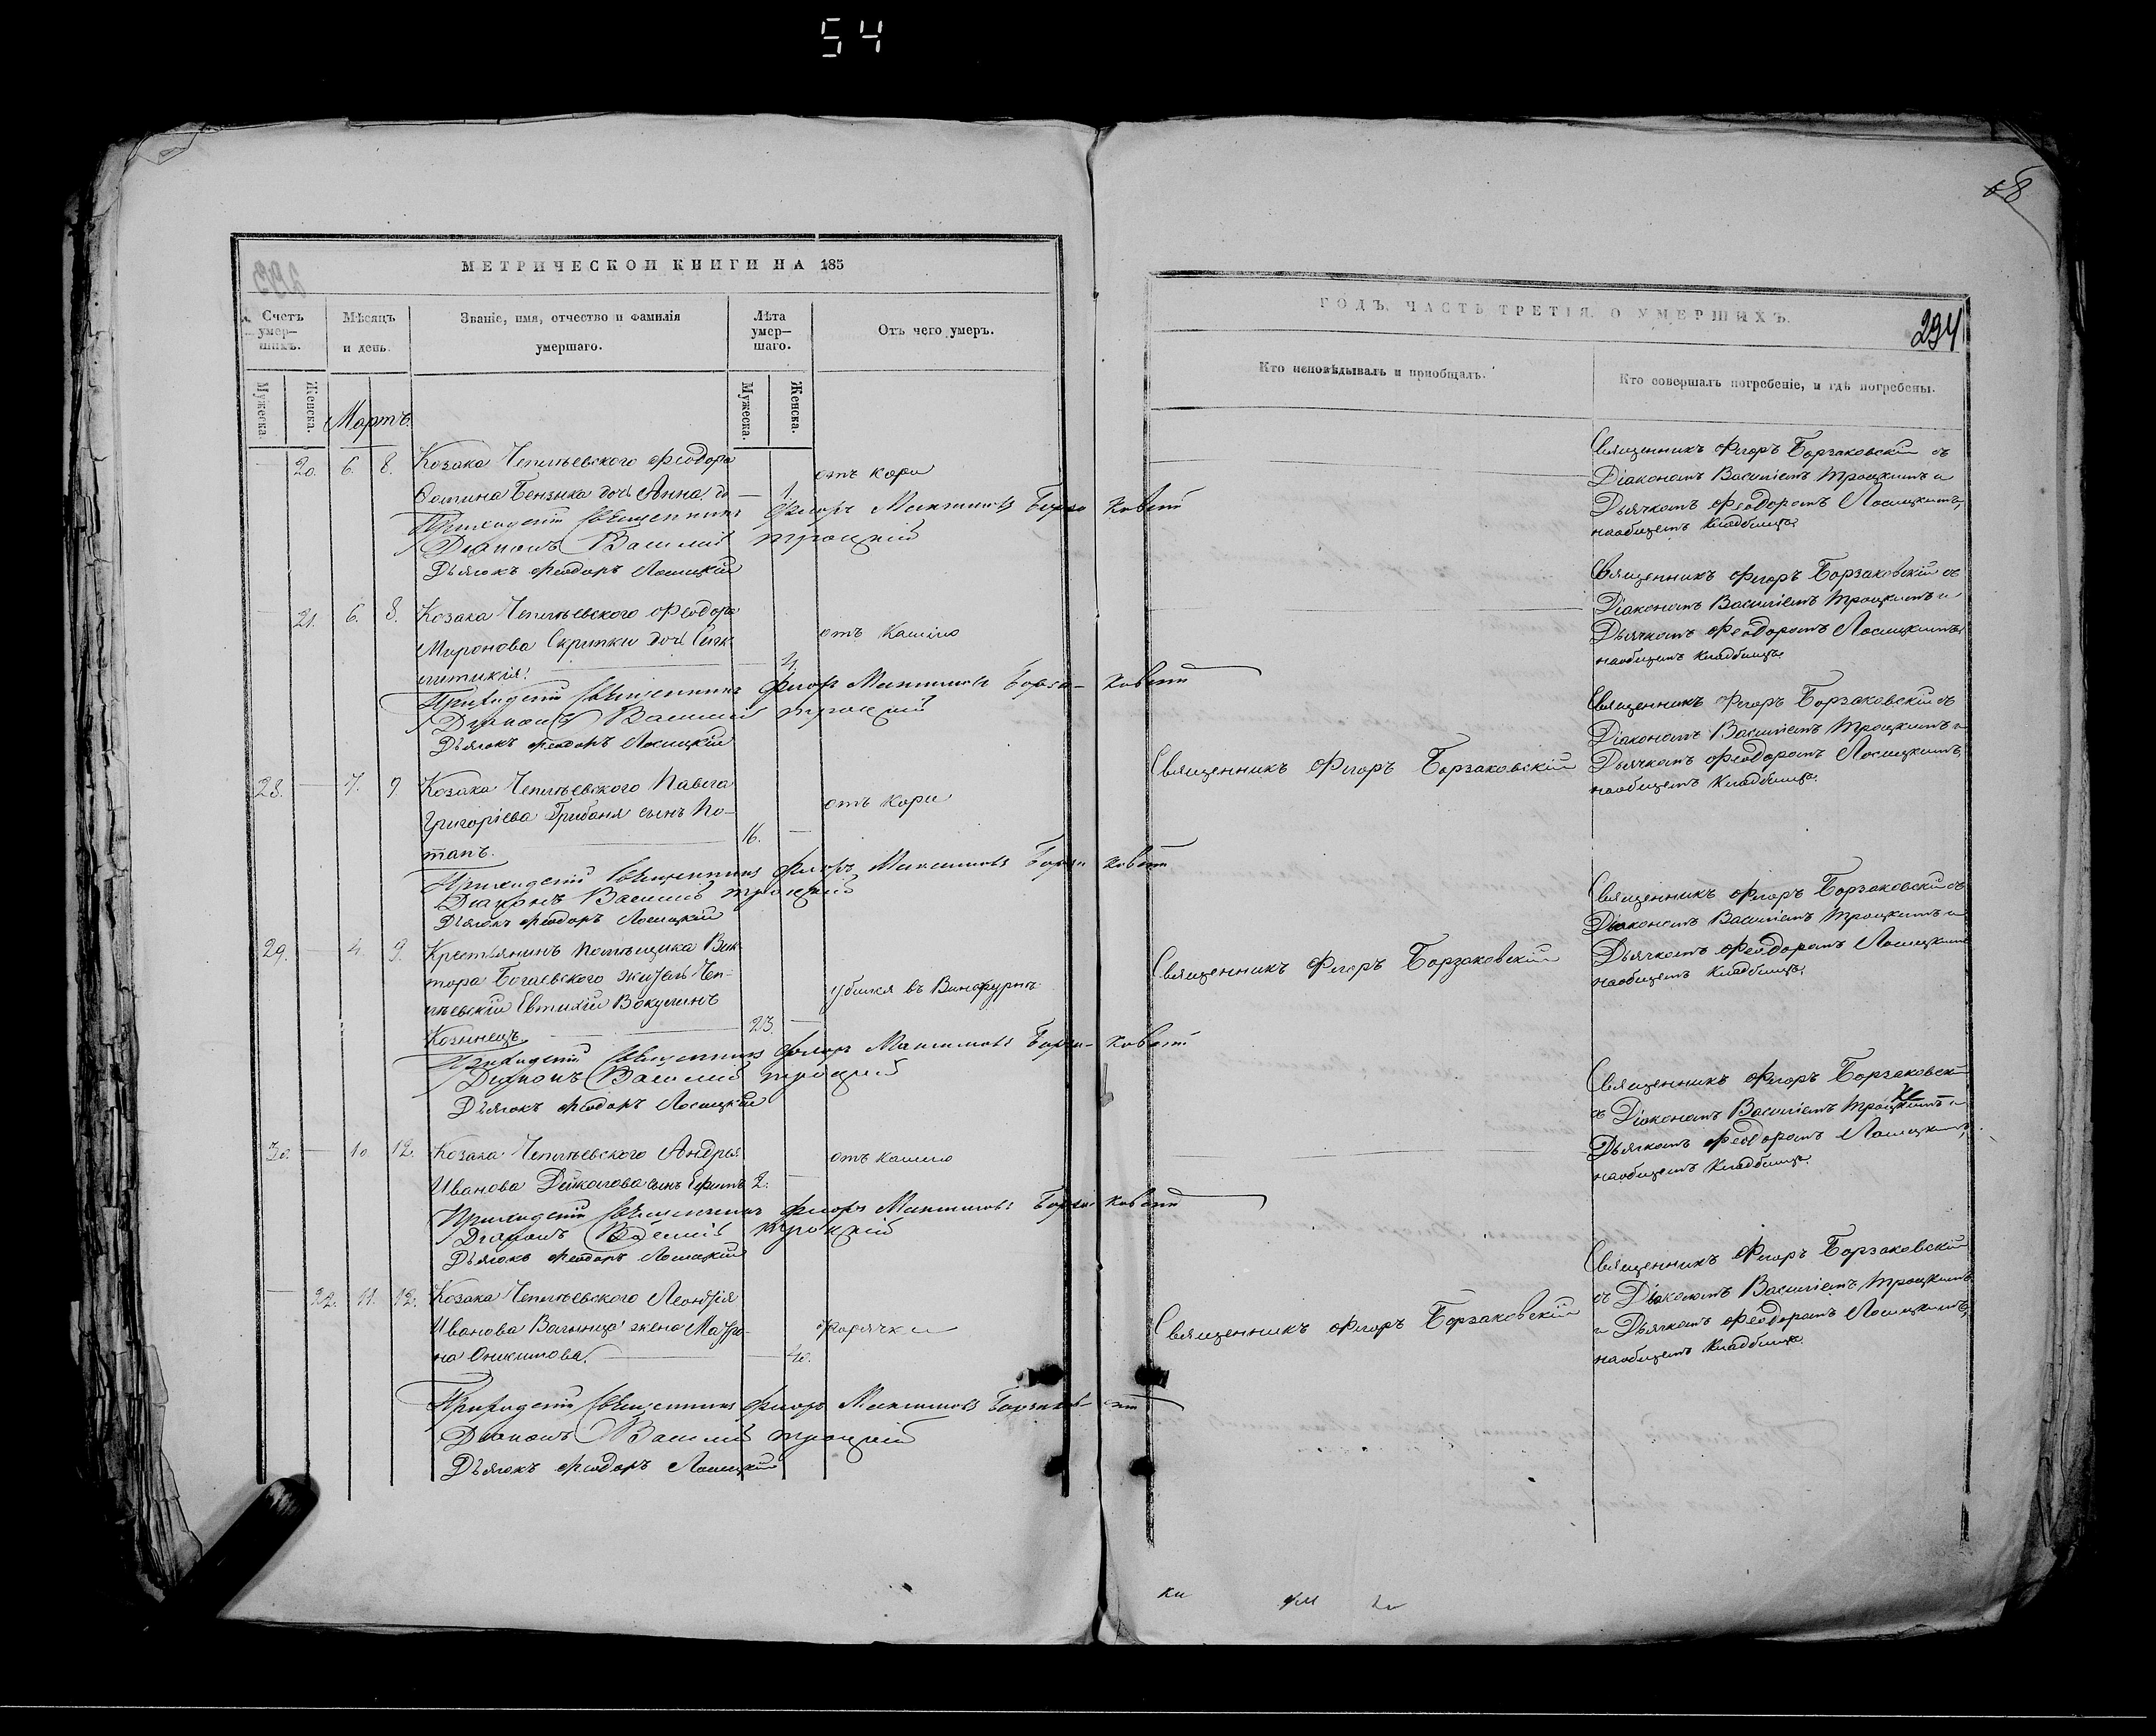 54
68
МЕТРИЧЕСКОЙ КНИГИ НА 185
Счетъ умер-шихъ.
Мѣсяцъ и день.
Званіе, имя, отчество и фамилія умершаго.
Лѣта умер-шаго.
Отъ чего умеръ.
Мужеска. Женска.
Мужеска. Женска.
Мартъ.
20. 6. 8. Козака Чепилевского Феодора
отъ кори
дочь Анна 1.
Приходскій Священникъ Флоръ Максимовъ Борзаковскій
Діаконъ Василій Троцкій
Дьячокъ Феодоръ Лосицкій
21. 6. 8. Козака Чепилевского Феодора
отъ кашлю
Миронова Скрипки дочь Синк-
литикія.
Приходскій Священникъ Флоръ Максимовъ Борзаковскій
Діаконъ Василій Троцкій
Дьячокъ Феодоръ Лосицкій
28. 7. 9 Козака Чепилевского Павла
отъ кори
Григоріева Грибаня сынъ По-
тапъ. 16.
Приходскій Священникъ Флоръ Максимовъ Борзаковскій
Діаконъ Василій Троцкій
Дьячокъ Феодоръ Лосицкій
29. 4. 9. Крестьянинъ помѣщика Вик-
тора Богаевского житель Чеп-
илевскій Евтихій Вакулинъ
23.
Приходскій Священникъ Флоръ Максимовъ Борзаковскій
Діаконъ Василій Троцкій
Дьячокъ Феодоръ Лосицкій
30. 10 12. Козака Чепилевского Андрея
отъ кашлю
Иванова сынъ Ефимъ 2.
Приходскій Священникъ Флоръ Максимовъ Борзаковскій
Діаконъ Василій Троцкій
Дьячокъ Феодоръ Лосицкій
22. 11. 12. Козака Чепилевского Леонтія
Иванова жена Матро-
горячки
на 40.
Приходскій Священникъ Флоръ Максимовъ Борзаковскій
Діаконъ Василій Троцкій
Дьячокъ Феодоръ Лосицкій
ГОДЪ, ЧАСТЬ ТРЕТІЯ, О УМЕРШИХЪ.
294
Кто исповѣдывалъ и пріобщалъ.
Кто совершалъ погребеніе, и гдѣ погребены.
Священникъ Флоръ Борзаковскій съ
Діакономъ Василіемъ Троцкимъ и
Дьячкомъ Феодоромъ Лосицкимъ,
наобщемъ кладбищѣ.
Священникъ Флоръ Борзаковскій съ
Діакономъ Василіемъ Троцкимъ и
Дьячкомъ Феодоромъ Лосицкимъ
наобщемъ кладбищѣ.
Священникъ Флоръ Борзаковскій
Священникъ Флоръ Борзаковскій съ
Діакономъ Василіемъ Троцкимъ и
Дьячкомъ Феодоромъ Лосицкимъ,
наобщемъ кладбищѣ.
Священникъ Флоръ Борзаковскій
Священникъ Флоръ Борзаковскій съ
Діакономъ Василіемъ Троцкимъ и
Дьячкомъ Феодоромъ Лосицкимъ
наобщемъ кладбищѣ.
Священникъ Флоръ Борзаковскій
съ Діакономъ Василіемъ Троцкимъ и
Дьячкомъ Феодоромъ Лосицкимъ,
наобщемъ кладбищѣ.
Священникъ Флоръ Борзаковскій
Священникъ Флоръ Борзаковскій
съ Діакономъ Василіемъ Троцкимъ
и Дьячкомъ Феодоромъ Лосицкимъ,
наобщемъ кладбищѣ.